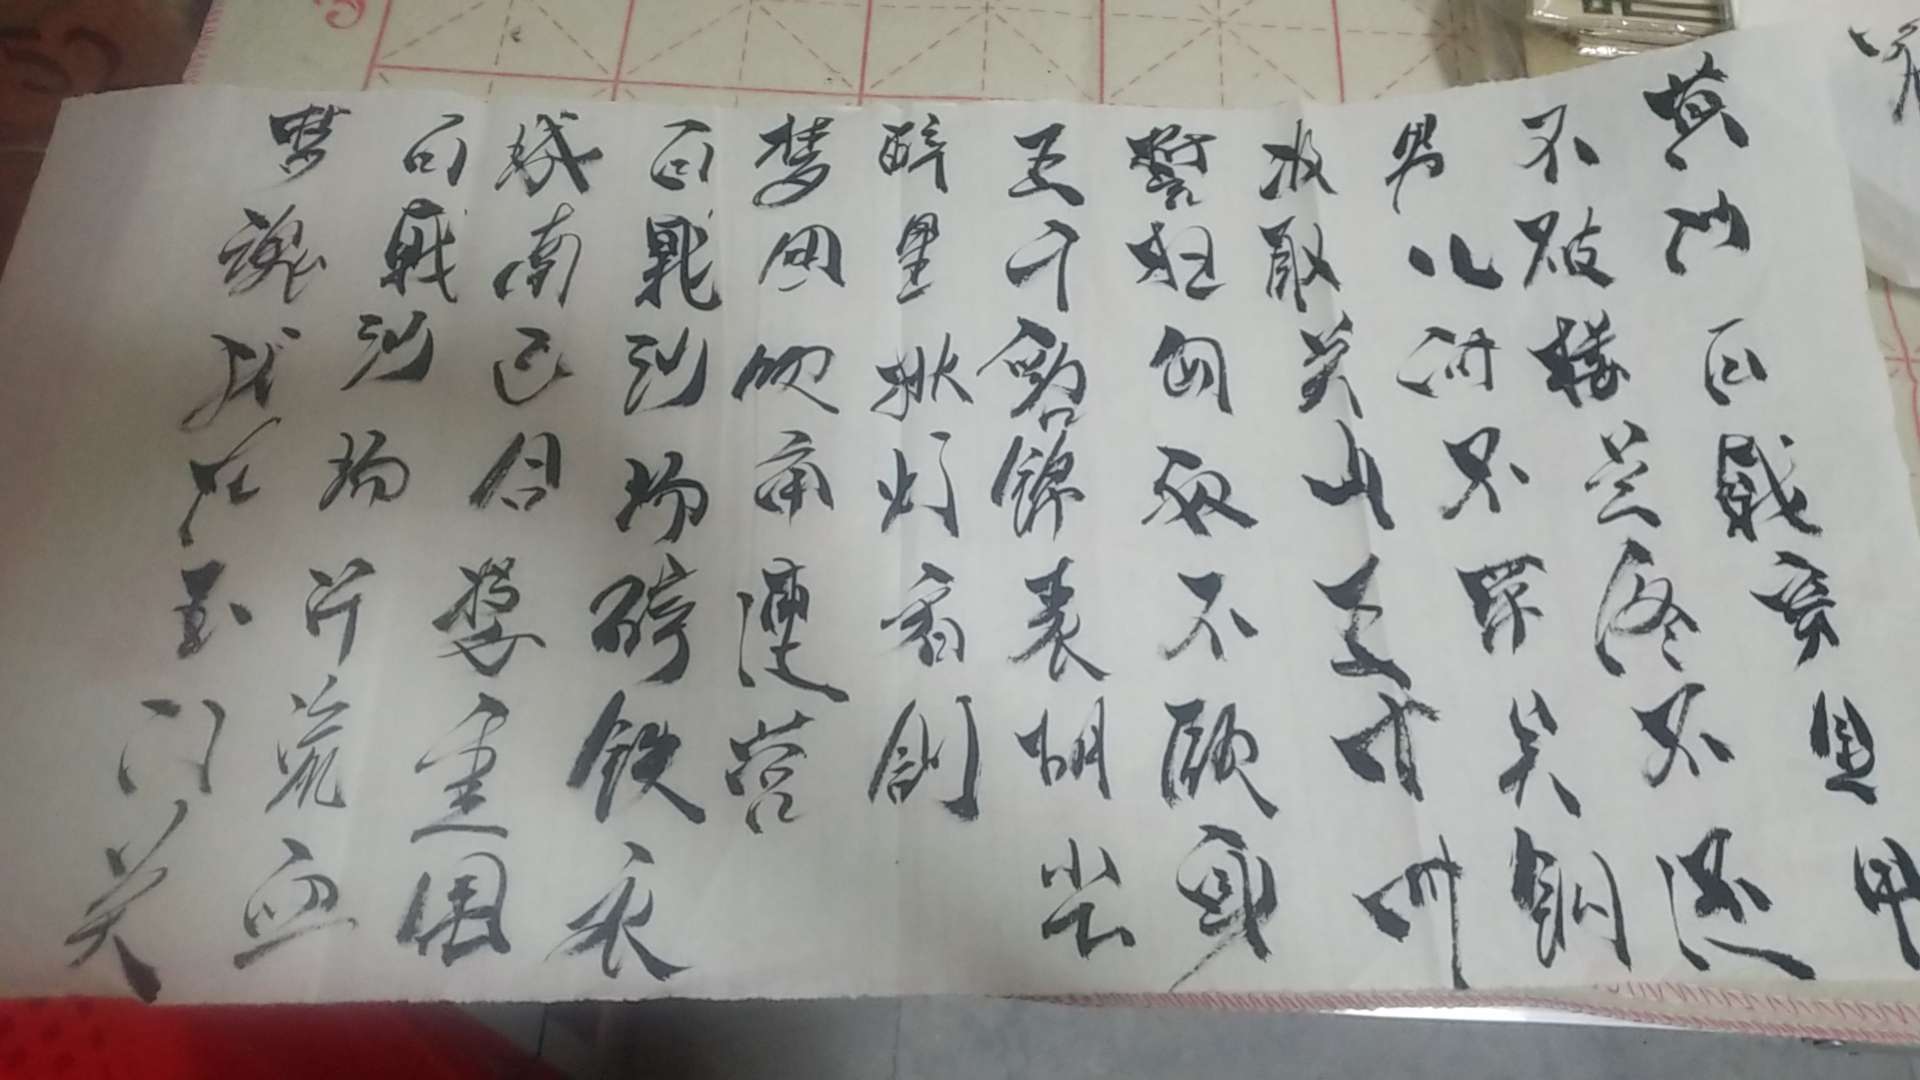 黄沙百战穿金甲
不破楼兰终不还
男儿何不带吴钩
收取关山五十州
誓扫匈奴不顾身
五千貂锦丧胡尘
醉里挑灯看剑
梦回吹角连营
百战沙场碎铁衣
城南已合数重围
百战沙场汗流血
梦魂犹在玉门关